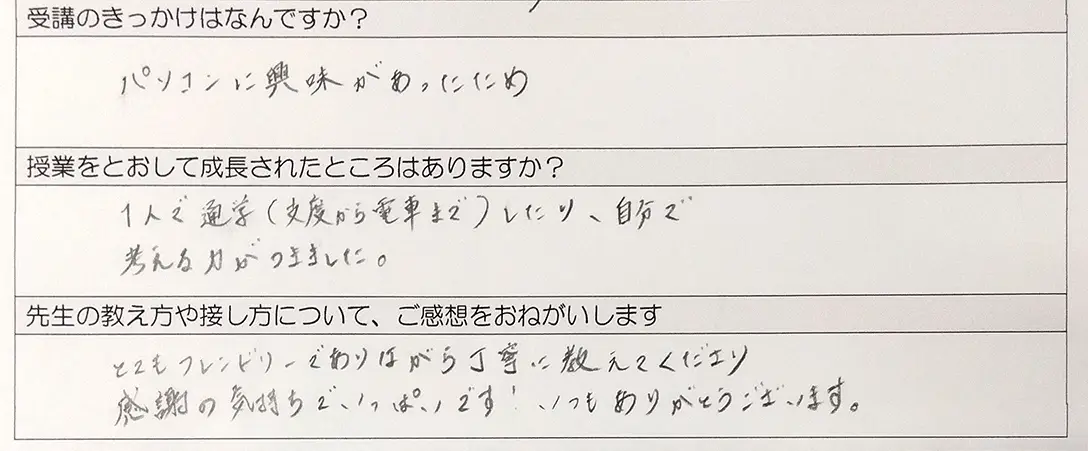 受講のきっかけはなんですか？
パソコンに興味があったため
授業をとおして成長されたところはありますか？
1人で通学(支度から電車まで)したり、自分で
考える力がつきました。
先生の教え方や接し方について、ご感想をおねがいします
とてもフレンドリーでありながら丁寧に教えてくださり
感謝の気持ちでいっぱいです！いつもありがとうございます。